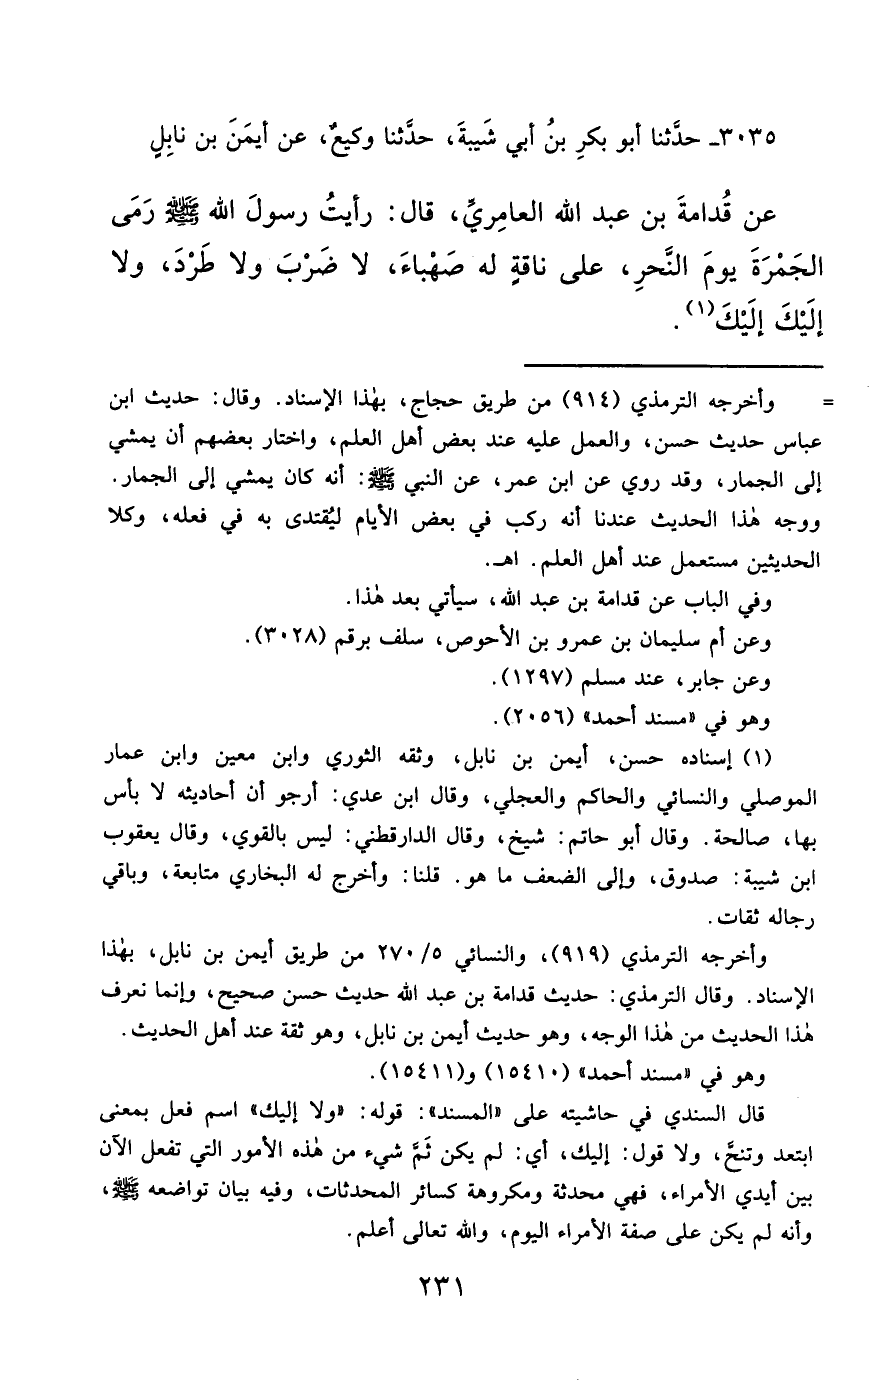 ٣٠٣٥ـ حدَّثنا أبو بكرِ بنُ أبي شَيبةَ، حدَّثنا وكيعٌ، عن أيمَنَ بن نابِلٍ
عن قُدامةَ بن عبد الله العامِريِّ، قال: رأيتُ رسولَ الله ﷺ رَمَى
الجَمْرَةَ يومَ النَّحرِ، على ناقةٍ له صَهْباءَ، لا ضَرْبَ ولا طَرْدَ، ولا
إلَيْكَ إلَيْكَ(١).
= وأخرجه الترمذي (٩١٤) من طريق حجاج، بهٰذا الإسناد. وقال: حديث ابن
عباس حديث حسن، والعمل عليه عند بعض أهل العلم، واختار بعضهم أن يمشي
إلى الجمار، وقد روي عن ابن عمر، عن النبي ﷺ: أنه كان يمشي إلى الجمار.
ووجه هٰذا الحديث عندنا أنه ركب في بعض الأيام ليُقتدى به في فعله، وكلا
الحديثين مستعمل عند أهل العلم. اهـ.
وفي الباب عن قدامة بن عبد الله، سيأتي بعد هٰذا.
وعن أم سليمان بن عمرو بن الأحوص، سلف برقم (٣٠٢٨).
وعن جابر، عند مسلم (١٢٩٧).
وهو في «مسند أحمد» (٢٠٥٦).
(١) إسناده حسن، أيمن بن نابل، وثقه الثوري وابن معين وابن عمار
الموصلي والنسائي والحاكم والعجلي، وقال ابن عدي: أرجو أن أحاديثه لا بأس
بها، صالحة. وقال أبو حاتم: شيخ، وقال الدارقطني: ليس بالقوي، وقال يعقوب
ابن شيبة: صدوق، وإلى الضعف ما هو. قلنا: وأخرج له البخاري متابعة، وباقي
رجاله ثقات.
وأخرجه الترمذي (٩١٩)، والنسائي ٥/ ٢٧٠ من طريق أيمن بن نابل، بهٰذا
الإسناد. وقال الترمذي: حديث قدامة بن عبد الله حديث حسن صحيح، وإنما نعرف
هٰذا الحديث من هٰذا الوجه، وهو حديث أيمن بن نابل، وهو ثقة عند أهل الحديث.
وهو في «مسند أحمد» (١٥٤١٠) و(١٥٤١١).
قال السندي في حاشيته على «المسند»: قوله: «ولا إليك» اسم فعل بمعنى
ابتعد وتنحَّ، ولا قول: إليك، أي: لم يكن ثَمَّ شيء من هٰذه الأمور التي تفعل الآن
بين أيدي الأمراء، فهي محدثة ومكروهة كسائر المحدثات، وفيه بيان تواضعه ﷺ،
وأنه لم يكن على صفة الأمراء اليوم، والله تعالى أعلم.
٢٣١